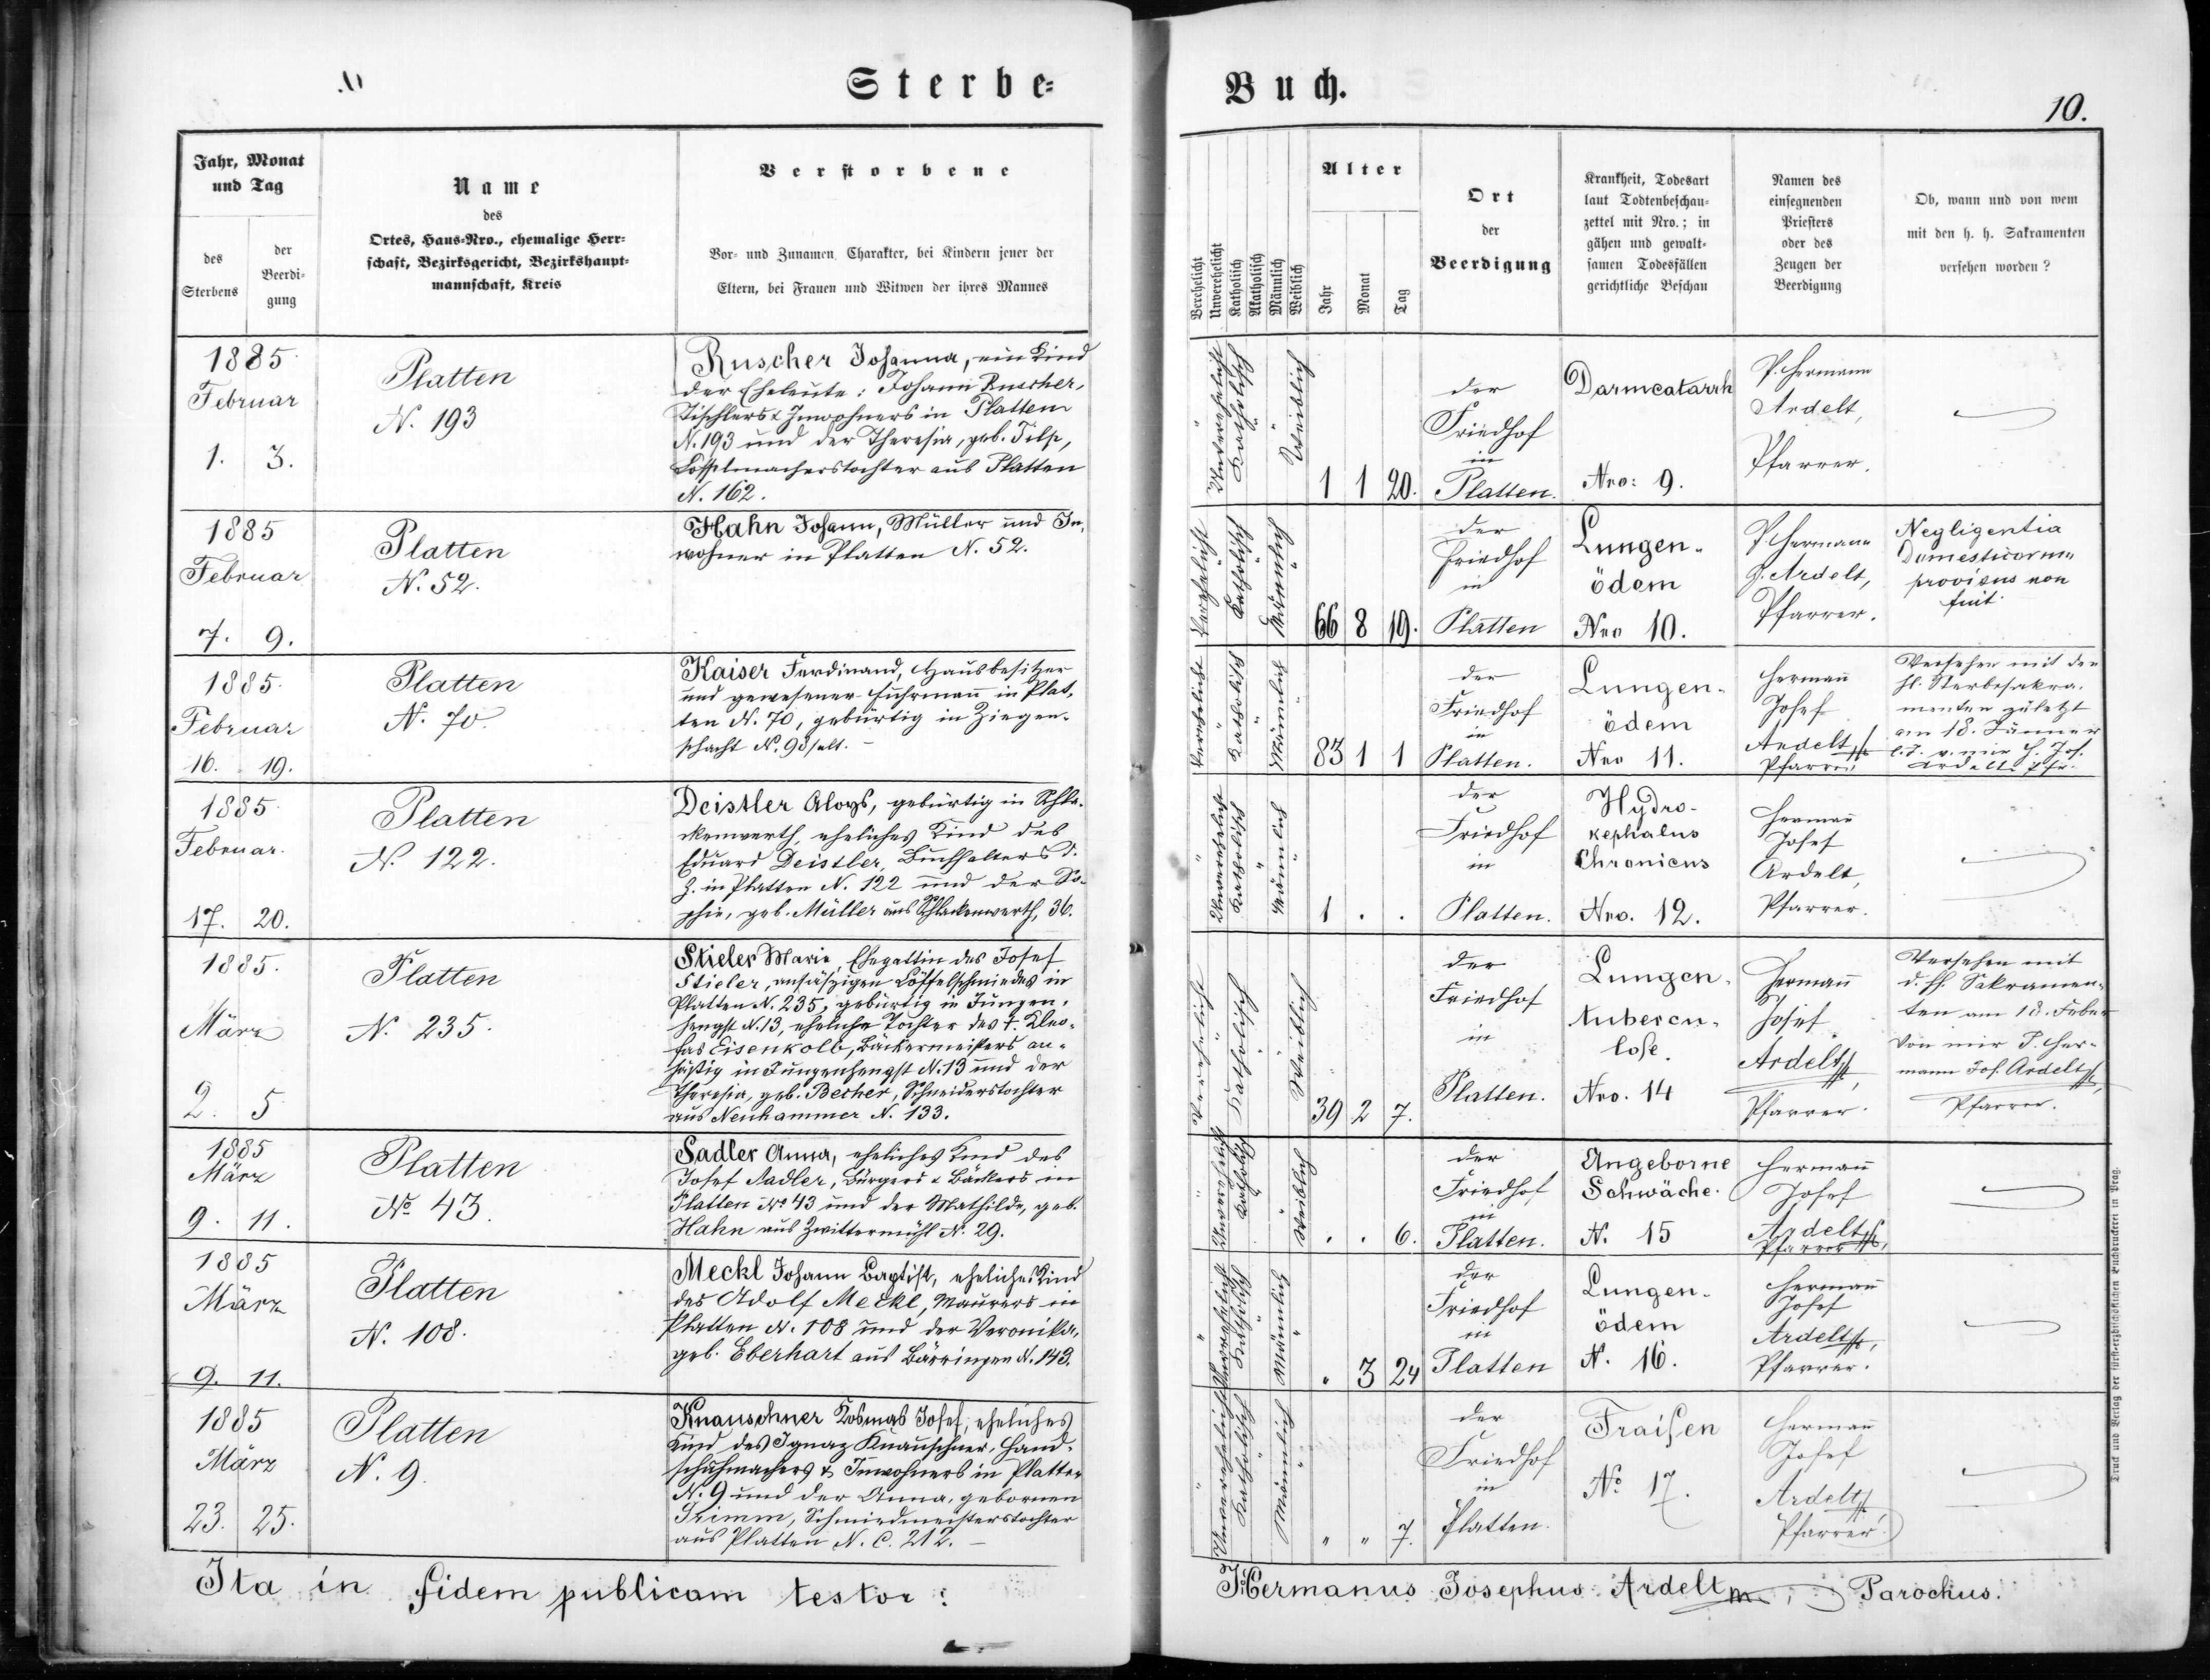 Sterbe-
Buch.
10.
Jahr, Monat
und Tag
des
Sterbens
der
Beerdi-
gung
Name
des
Ortes, Haus-Nro., ehemalige Herr-
schaft, Bezirksgericht, Bezirkshaupt-
mannschaft, Kreis
Verstorbene
Vor- und Zunamen, Charakter, bei Kindern jener der
Eltern, bei Frauen und Witwen der ihres Mannes
Verehelicht
Unverehelicht
Katholisch
Akatholisch
Männlich
Weiblich
Alter
Jahr
Monat
Tag
Ort
der
Beerdigung
Krankheit, Todesart
laut Todtenbeschau-
zettel mit Nro.; in
gähen und gewalt-
samen Todesfällen
gerichtliche Beschau
Namen des
einsegnenden
Priesters
oder des
Zeugen der
Beerdigung
Ob, wann und von wem
mit den h. h. Sakramenten
versehen worden?
1885
Februar
1. 3.
Platten
N. 193
Ruscher Johanna, ein Kind
der Eheleute: Johann Ruscher,
Tischlers & Inwohners in Platten
N. 193 und der Theresia, geb. Tilp,
Löffelmacherstochter aus Platten
N. 162.
Unverehelicht
Katholisch
Weiblich
1 1 20.
der
Friedhof
in
Platten.
Darmcatarrh
Nro: 9.
P. Hermann
Ardelt,
Pfarrer.
1885
Februar
7. 9.
Platten
N. 52.
Hahn Johann, Müller und In-
wohner in Platten N. 52.
Verehelicht
Katholisch
Männlich
66 8 19.
der
Friedhof
in
Platten
Lungen-
ödem
Nro 10.
P. Hermann
J. Ardelt,
Pfarrer.
Negligentia
Domesticorum
provisus non
fuit.
1885.
Februar
16. 19.
Platten
N. 70.
Kaiser Ferdinand, Hausbesitzer
und gewesener Fuhrmann in Plat-
ten N. 70, gebürtig in Ziegen-
schacht N. 98/alt. –
Verehelicht
Katholisch
Männlich
83 1 1
der
Friedhof
in
Platten.
Lungen-
ödem
Nro 11.
Hermann
Josef
Ardelt
Pfarrer
Versehen mit den
hl. Sterbesakra-
menten zuletzt
am 18. Jänner
l. J. v. mir H. Jos.
Ardelt Pfr.
1885
Februar.
17. 20.
Platten
N. 122.
Deistler Aloys, gebürtig in Schla-
ckenwerth, eheliches Kind des
Eduard Deistler, Buchhalters d.
Z. in Platten N. 122 und der So-
phie, geb. Müller aus Schlackenwerth, 36.
Unverehelicht
Katholisch
Männlich
1 . .
der
Friedhof
in
Platten.
Hydro-
kephalus
Chronicus
Nro. 12.
Hermann
Josef
Ardelt,
Pfarrer.
1885.
März
2. 5
Platten
N. 235.
Stieler Marie, Ehegattin des Josef
Stieler, ansäßigen Löffelschmiedes in
Platten N. 235, gebürtig in Jungen-
hengst N. 13, eheliche Tochter des †. Kleo-
fas Eisenkolb, Bäckermeisters an-
säßig in Jungenhengst N. 13 und der
Theresia, geb. Becher, Schneiderstochter
aus Neuhammer N. 133.
Verehelicht
Katholisch
Weiblich
39 2 7.
der
Friedhof
in
Platten.
Lungen-
tubercu-
lose.
Nro. 14
Hermann
Josef
Ardelt,
Pfarrer.
Versehen mit
d. hl. Sakramen-
ten am 18. Feber
von mir P. Her-
mann Jos. Ardelt,
Pfarrer.
1885
März
9. 11.
Platten
No 43.
Sadler Anna, eheliches Kind des
Josef Sadler, Bürgers & Bäckers in
Platten No 43 und der Mathilde, geb.
Hahn aus Zwittermühl N. 29.
Unverehelicht
Katholisch
Weiblich
. . 6.
der
Friedhof
in
Platten.
Angeborne
Schwäche.
N. 15
Hermann
Josef
Ardelt,
Pfarrer
1885
März
9. 11.
Platten
N. 108.
Meckl Johann Baptist, eheliches Kind
des Adolf Meckl, Maurers in
Platten N. 108 und der Veronika,
geb. Eberhart aus Bärringen N. 143.
Unverehelicht
Katholisch
Männlich
" 3 24
der
Friedhof
in
Platten
Lungen-
ödem
N. 16.
Hermann
Josef
Ardelt,
Pfarrer.
1885
März
23. 25.
Platten
N. 9.
Knauschner Kosmas Josef, eheliches
Kind des Ignaz Knauschner, Hand-
schuhmachers & Inwohners in Platten
N. 9 und der Anna, gebornen
Grimm, Schmiedmeisterstochter
aus Platten N. C. 212. –
Unverehelicht
Katholisch
Männlich
" " 7.
der
Friedhof
in
Platten.
Fraisen
No 17.
Hermann
Josef
Ardelt
Pfarrer.
Ita in fidem publicam testor:
P. Hermanus Josephus Ardelt, Parochus.
Druck und Verlag der fürst-erzbischöflichen Buchdruckerei in Prag.